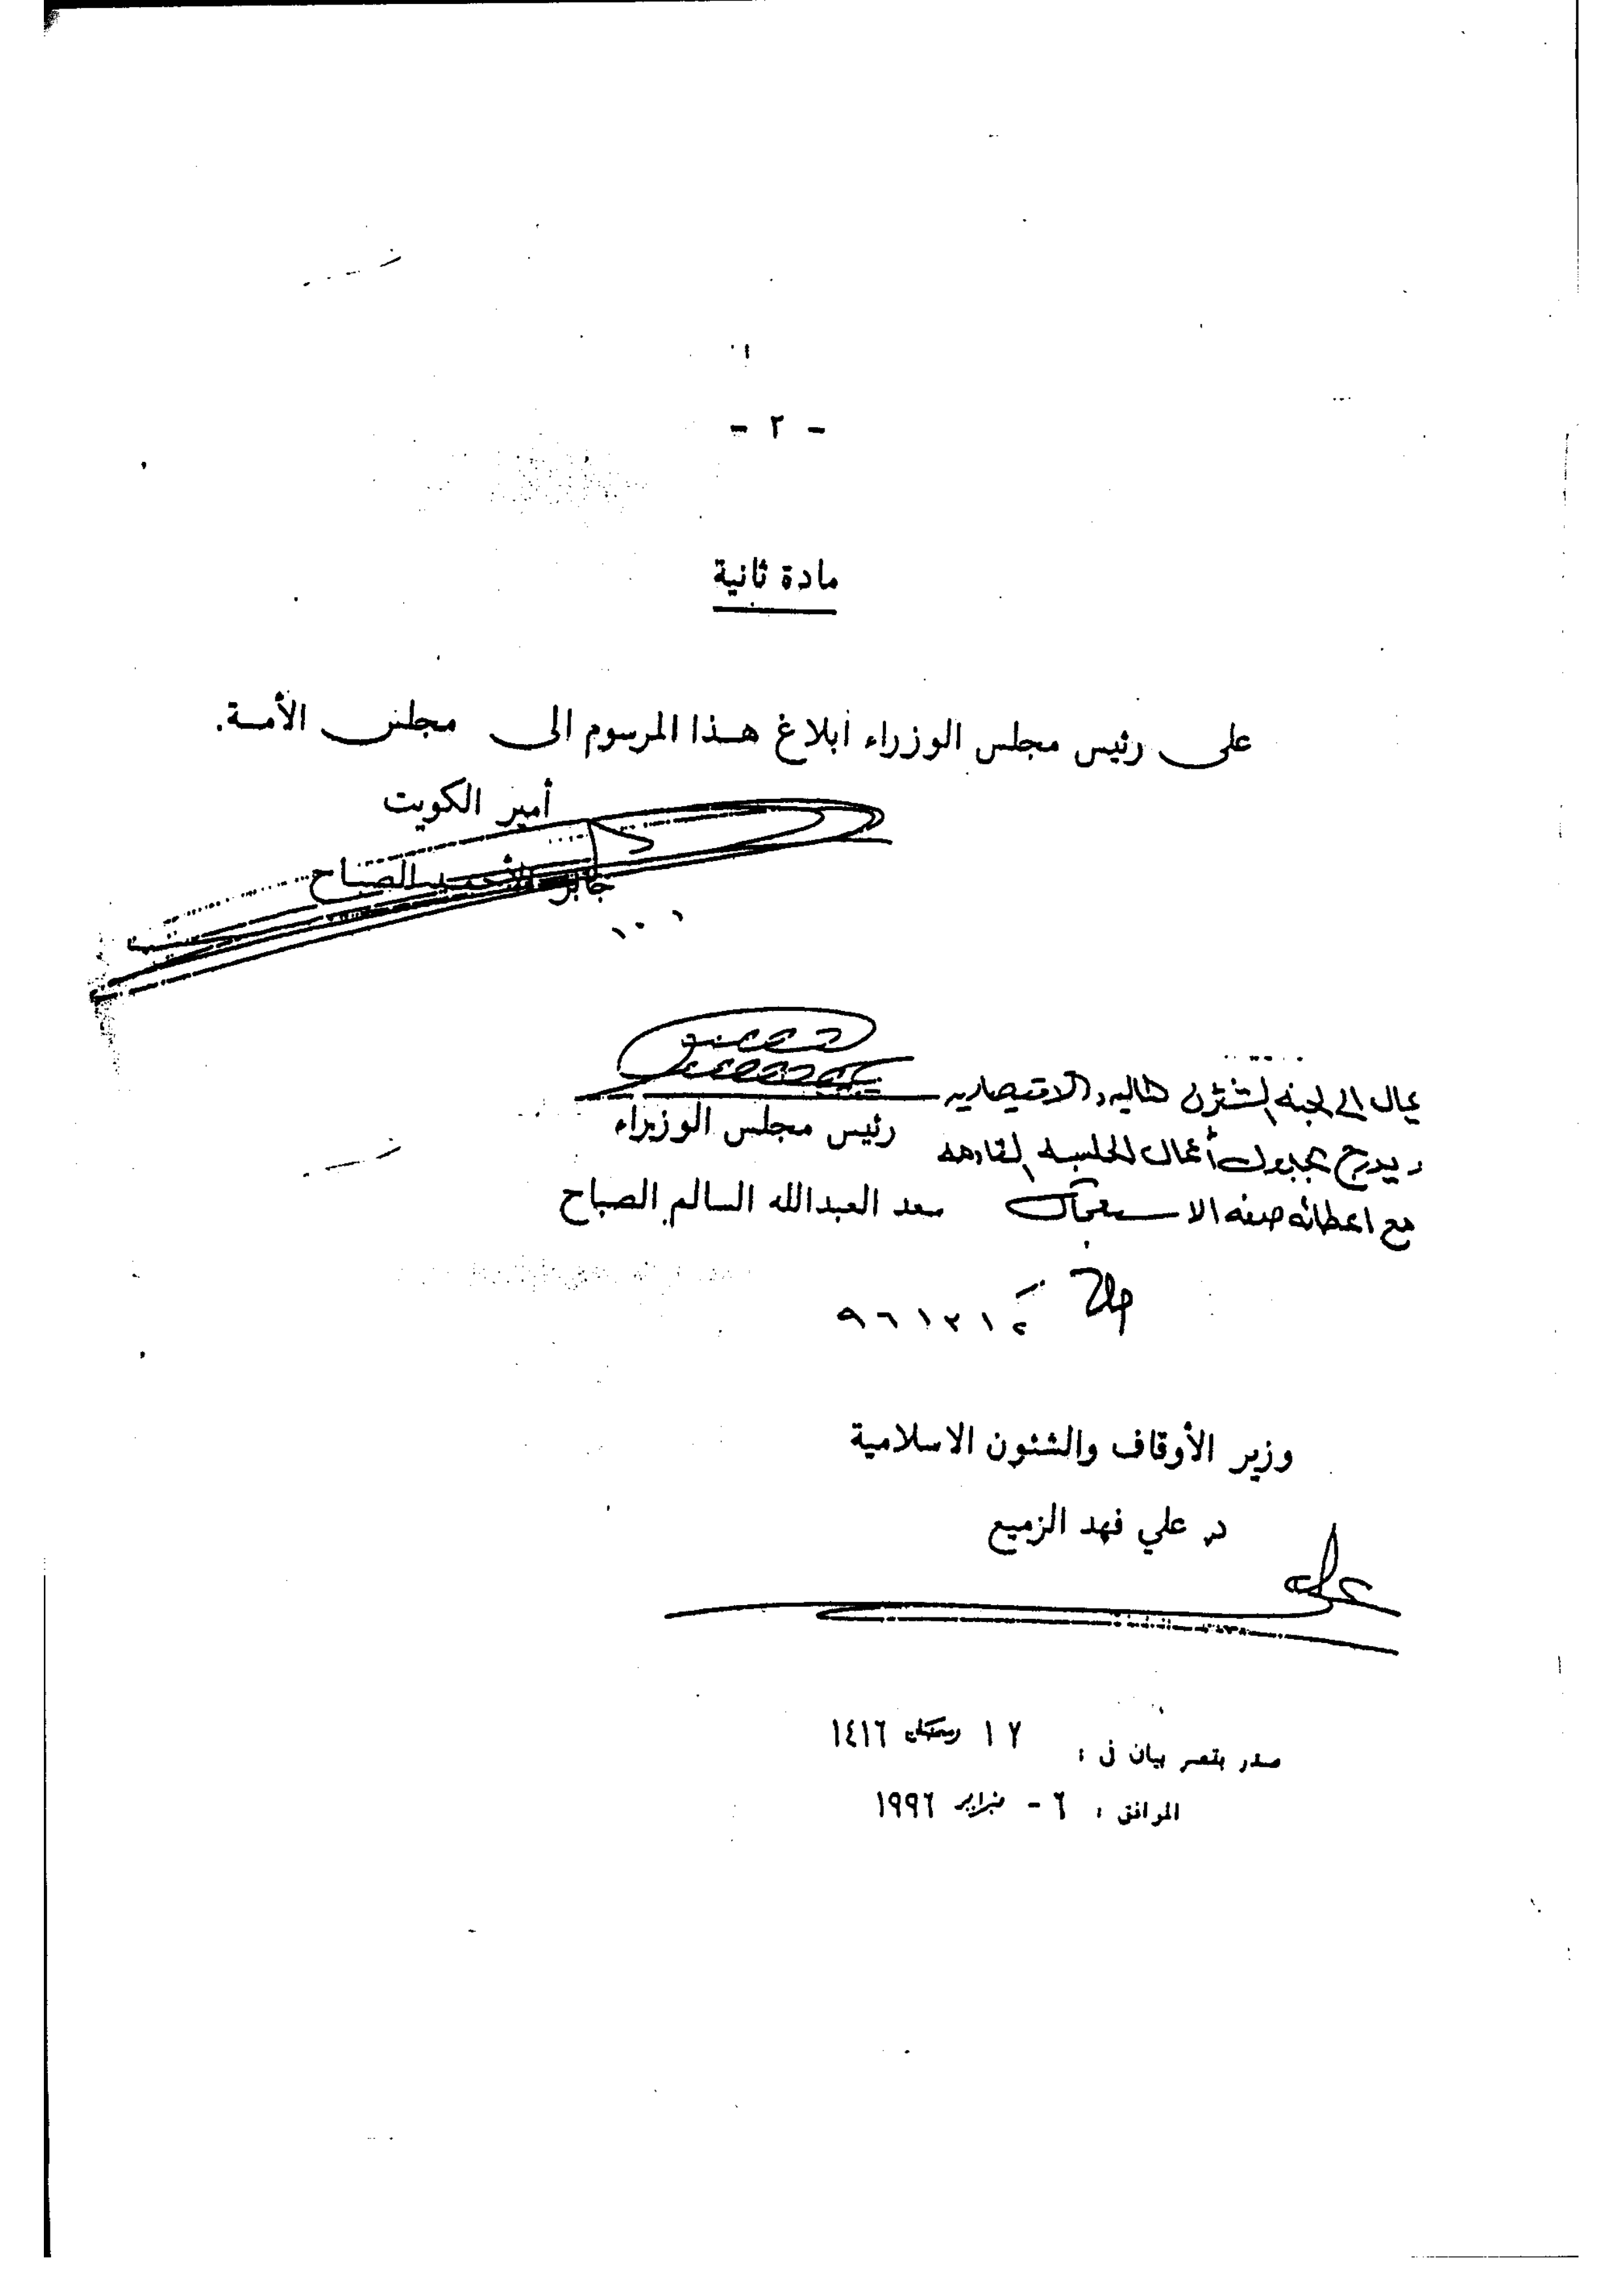 - ٢ -
مادة ثانية
على رئيس مجلس الوزراء أبلاغ هذا المرسوم الى مجلس الأمة.
أمير الكويت
جابر الأحمد الصباح
يحال الى لجنة الشئون المالية والاقتصادية
رئيس مجلس الوزراء
ويدرج بجدول أعمال الجلسة القادمة
مع اعطائه صفة الاستعجال
سعد العبدالله السالم الصباح
وزير الأوقاف والشئون الاسلامية
د. علي فهد الزميع
صدر بقصر بيان في : ١٧ رمضان ١٤١٦
الموافق : ٦ - فبراير ١٩٩٦